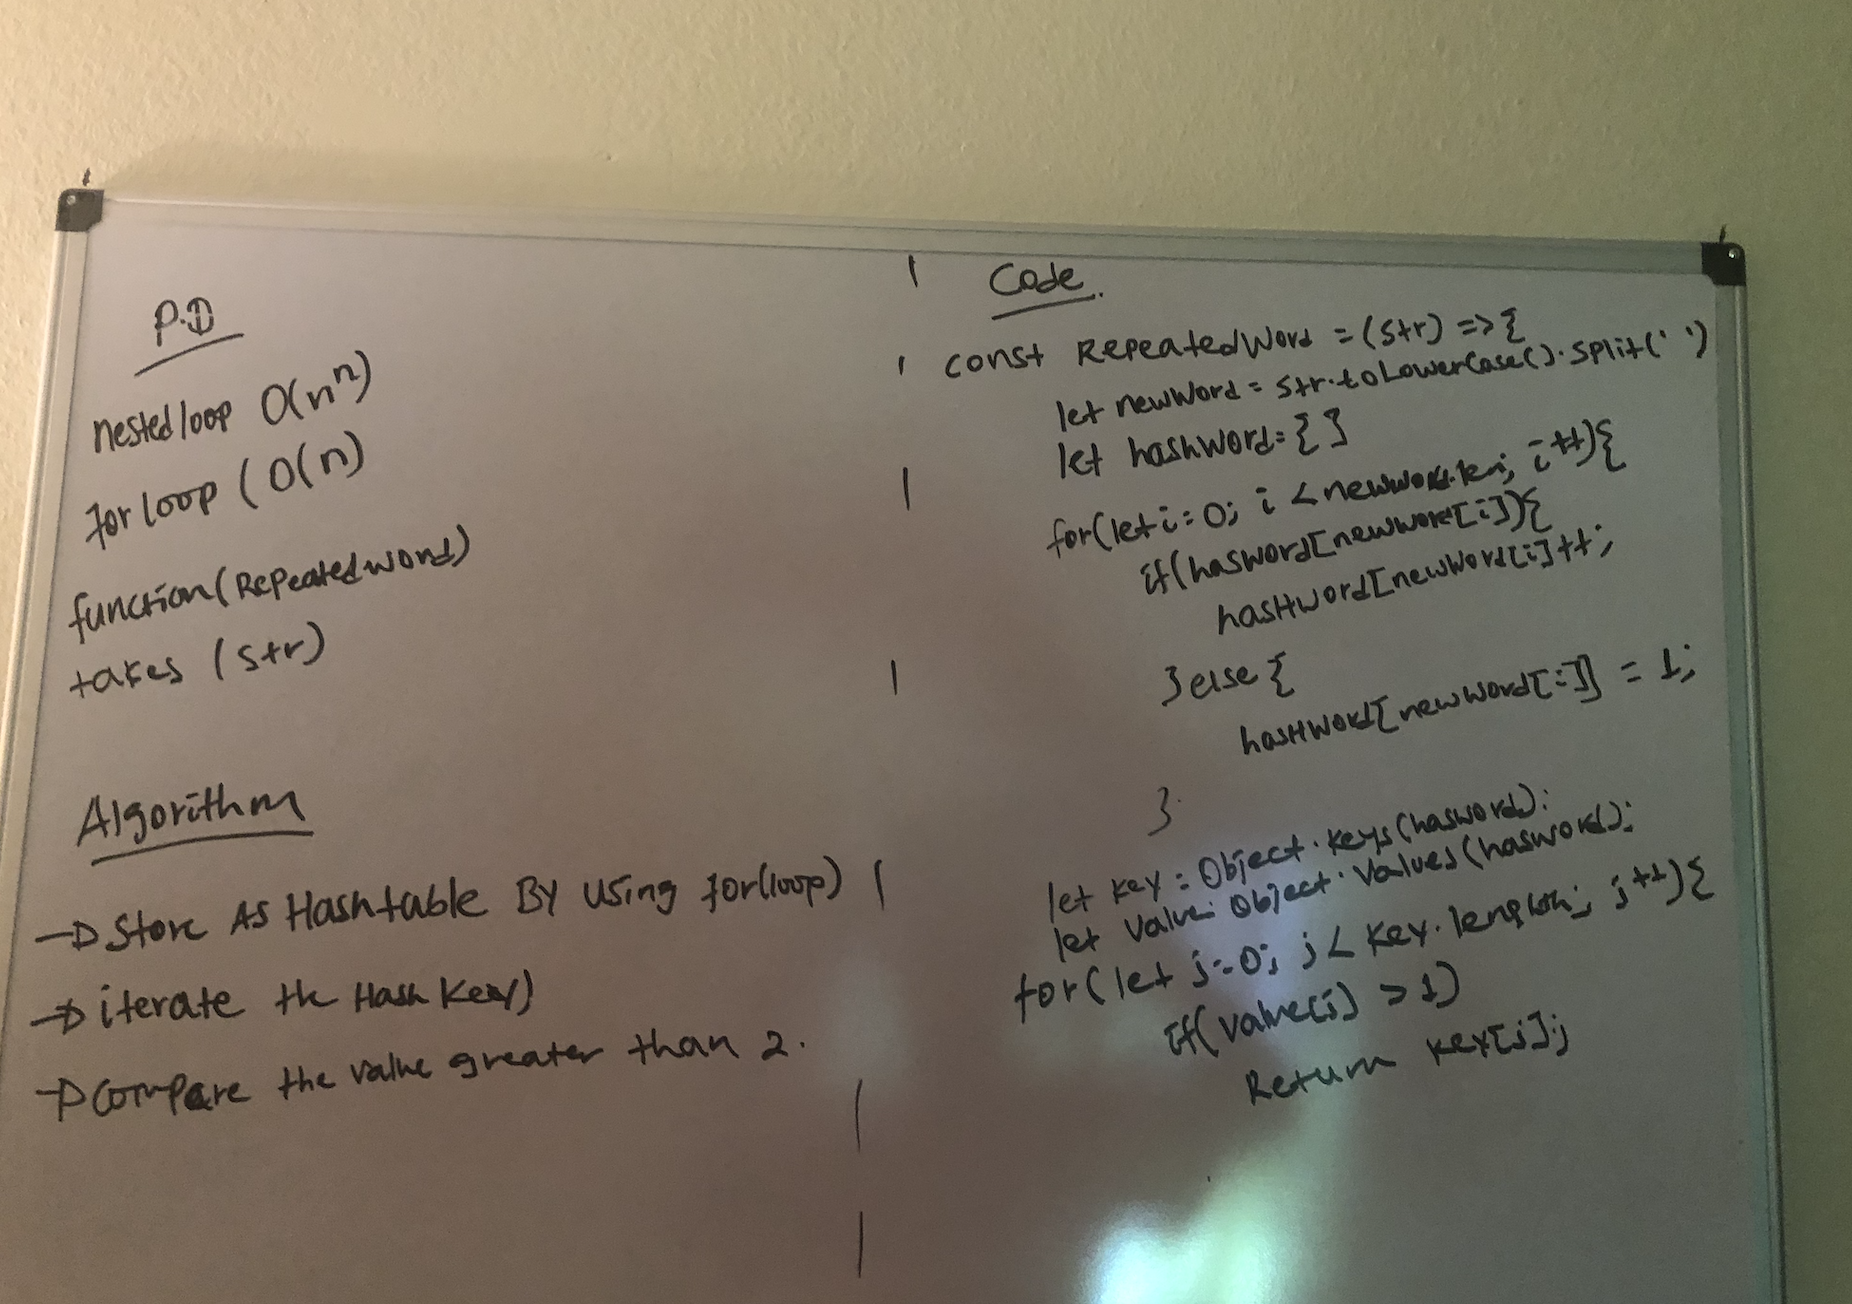 P.D
nested loop O(n^n)
for loop ( O(n)
function(RepeatedWord)
takes (str)
Algorithm
→ Store AS Hashtable BY Using for(loop)
→ iterate the Hash Key)
→ Compare the value greater than 2.
Code.
const RepeatedWord = (str) => {
let newWord = str.toLowerCase().split(' ')
let hashWord = { }
for(let i = 0; i < newword.len; i++){
if(hasWord[newword[i]){
hasHword[newWord[i]++;
}else{
hasHword[newWord[i]] = 1;
}
let key = Object.keys(hasword);
let value = Object.values(hasword);
for(let j=0; j< key.length; j++){
if(value[j] > 1)
Return key[j];